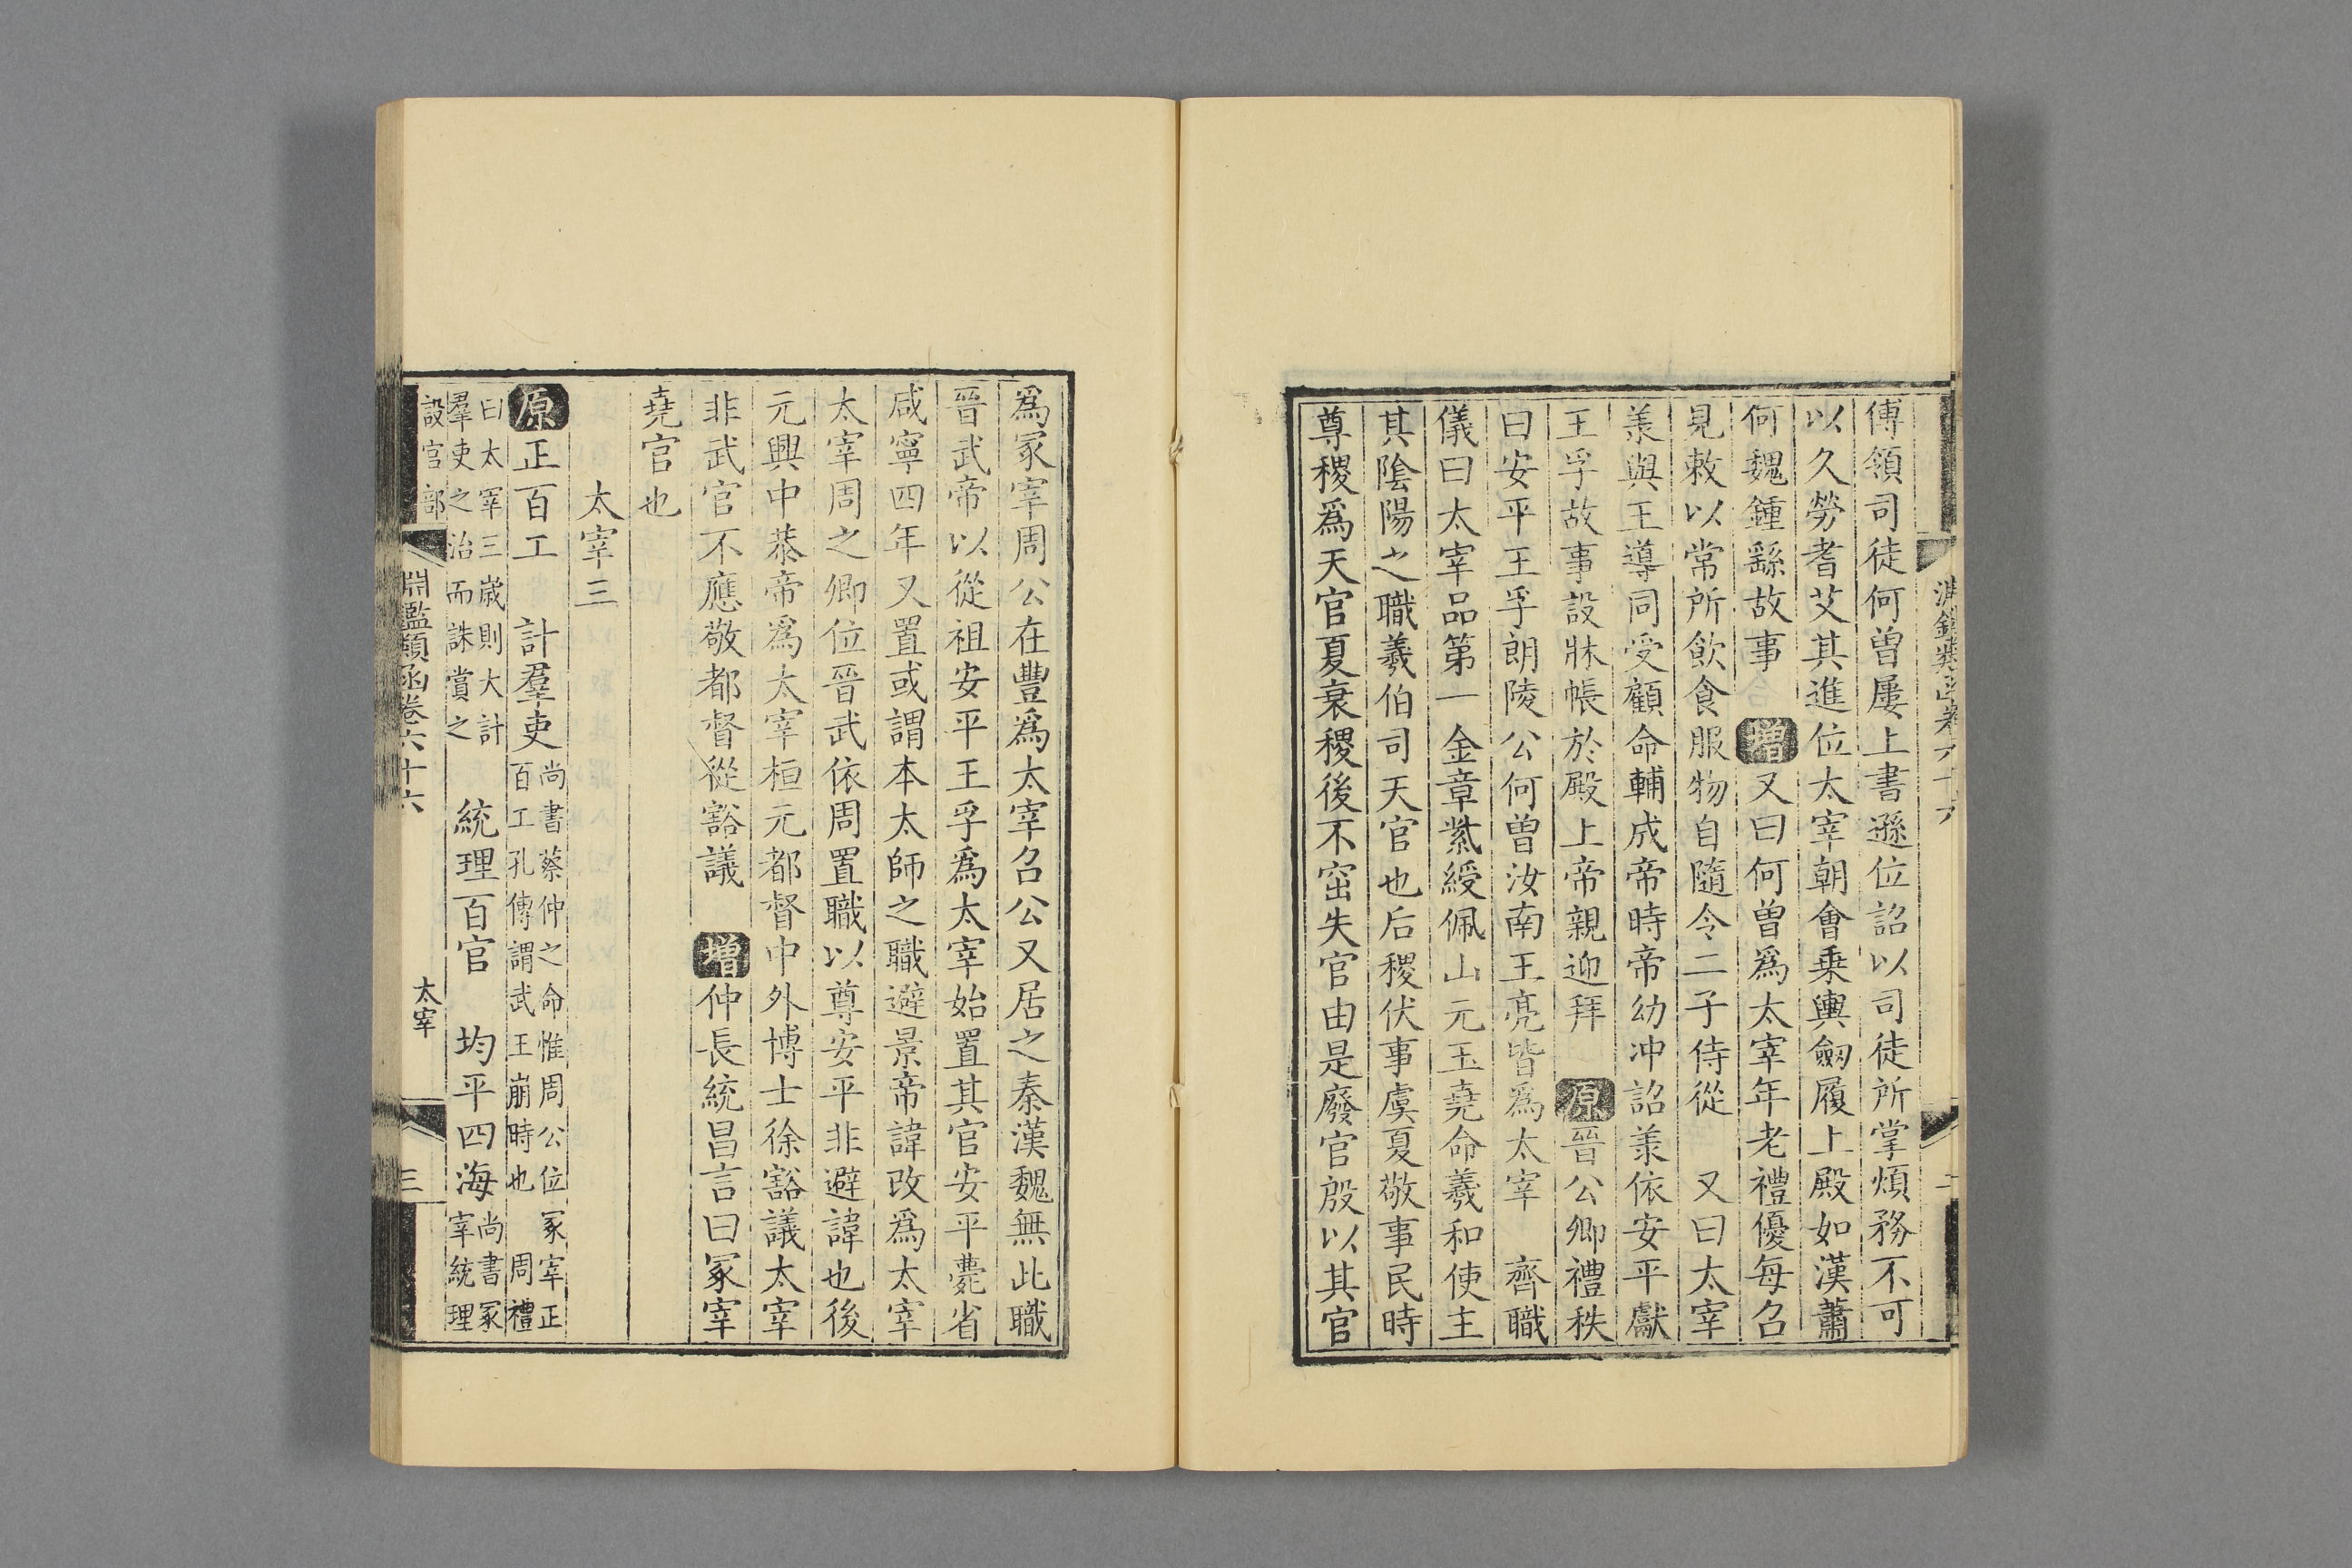 傅領司徒何曾屢上書遜位詔以司徒所掌煩務不可
以久勞耆艾其進位太宰朝會乗輿劒履上殿如漢蕭
何魏鍾繇故事 增又曰何曾爲太宰年老禮優每召
見敕以常所飲食服物自隨令二子侍從 又曰太宰
羕與王導同受顧命輔成帝時帝幼冲詔羕依安平獻
王孚故事設牀帳於殿上帝親迎拜 原晉公卿禮秩
曰安平王孚朗陵公何曾汝南王亮皆爲太宰 齊職
儀曰太宰品第一金章紫綬佩山元玉堯命羲和使主
其陰陽之職羲伯司天官也后稷伏事虞夏敬事民時
尊稷爲天官夏衰稷後不窋失官由是廢官殷以其官
爲冢宰周公在豐爲太宰召公又居之秦漢魏無此職
晉武帝以從祖安平王孚爲太宰始置其官安平薨省
咸寧四年又置或謂本太師之職避景帝諱改爲太宰
太宰周之卿位晉武依周置職以尊安平非避諱也後
元興中恭帝爲太宰桓元都督中外博士徐豁議太宰
非武官不應敬都督從豁議 增仲長統昌言曰冢宰
堯官也
太宰三
原正百工 計羣吏 尚書蔡仲之命惟周公位冢宰正
百工孔傳謂武王崩時也 周禮
曰太宰三歲則大計
羣吏之治而誅賞之 統理百官 均平四海 尚書冢
宰統理
設官部
淵鑑類函卷六十六
太宰
三